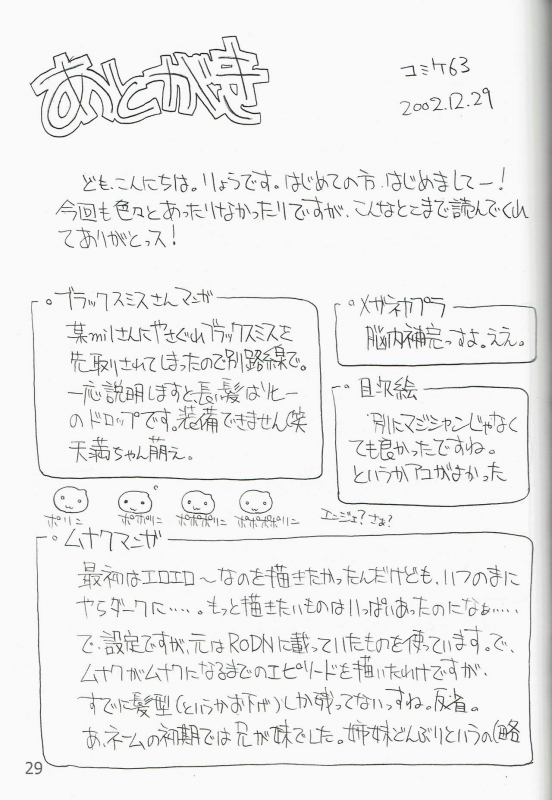 あとがき
コミケ63
2002.12.29
ども、こんにちは。りょうです。はじめての方、はじめましてー!
今回も色々とあったりなかったりですが、こんなとこまで読んでくれ
てありがとっス!
ブラックスミスさんマンガ
某milさんにやさぐれブラックスミスを
先取りされてしまったので別路線で。
一応説明しますと長い髪はソヒー
のドロップです。装備できません(笑
天満ちゃん萌え。
メガネカプラ
脳内補完っすよ。ええ。
目次絵
別にマジシャンじゃなく
ても良かったですね。
というかアコがよかった
ポリン
ポポリン
ポポポリン
ポポポポリン
エンジェ?さあ?
ムナクマンガ
最初はエロエロ〜なのを描きたかったんだけども、いつのまに
やらダークに……。もっと描きたいものはいっぱいあったのになぁ……
で、設定ですが、元はRODNに載っていたものを使っています。で、
ムナクがムナクになるまでのエピソードを描いたわけですが、
すでに髪型(というかお下げ)しか残ってないっすね。反省。
あ、ネームの初期では兄が妹でした。姉妹どんぶりというの(略
29